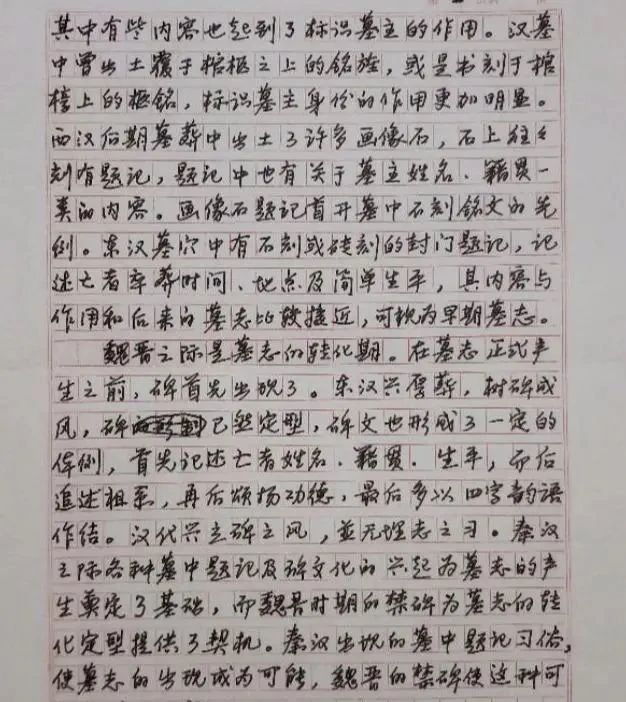 其中有些内容也起到了标识墓主的作用。汉墓
中曾出土覆于棺柩之上的铭旌，或是书刻于棺
椁上的柩铭，标识墓主身份的作用更加明显。
西汉后期墓葬中出土了许多画像石，石上往々
刻有题记，题记中也有关于墓主姓名、籍贯一
类的内容。画像石题记首开墓中石刻铭文的先
例。东汉墓穴中有石刻或砖刻的封门题记，记
述亡者卒葬时间、地点及简单生平，其内容与
作用和后来的墓志比较接近，可视为早期墓志。
魏晋之际是墓志的转化期。在墓志正式产
生之前，碑首先出现了。东汉兴厚葬，树碑成
风，碑已然定型，碑文也形成了一定的
体例，首先记述亡者姓名、籍贯、生平，而后
追述祖系，再后颂扬功德，最后多以四字韵语
作结。汉代兴立碑之风，並无埋志之习。秦汉
之际各种墓中题记及碑文化的兴起为墓志的产
生奠定了基础，而魏晋时期的禁碑为墓志的转
化定型提供了契机。秦汉出现的墓中题记习俗，
使墓志的出现成为可能，魏晋的禁碑使这种可